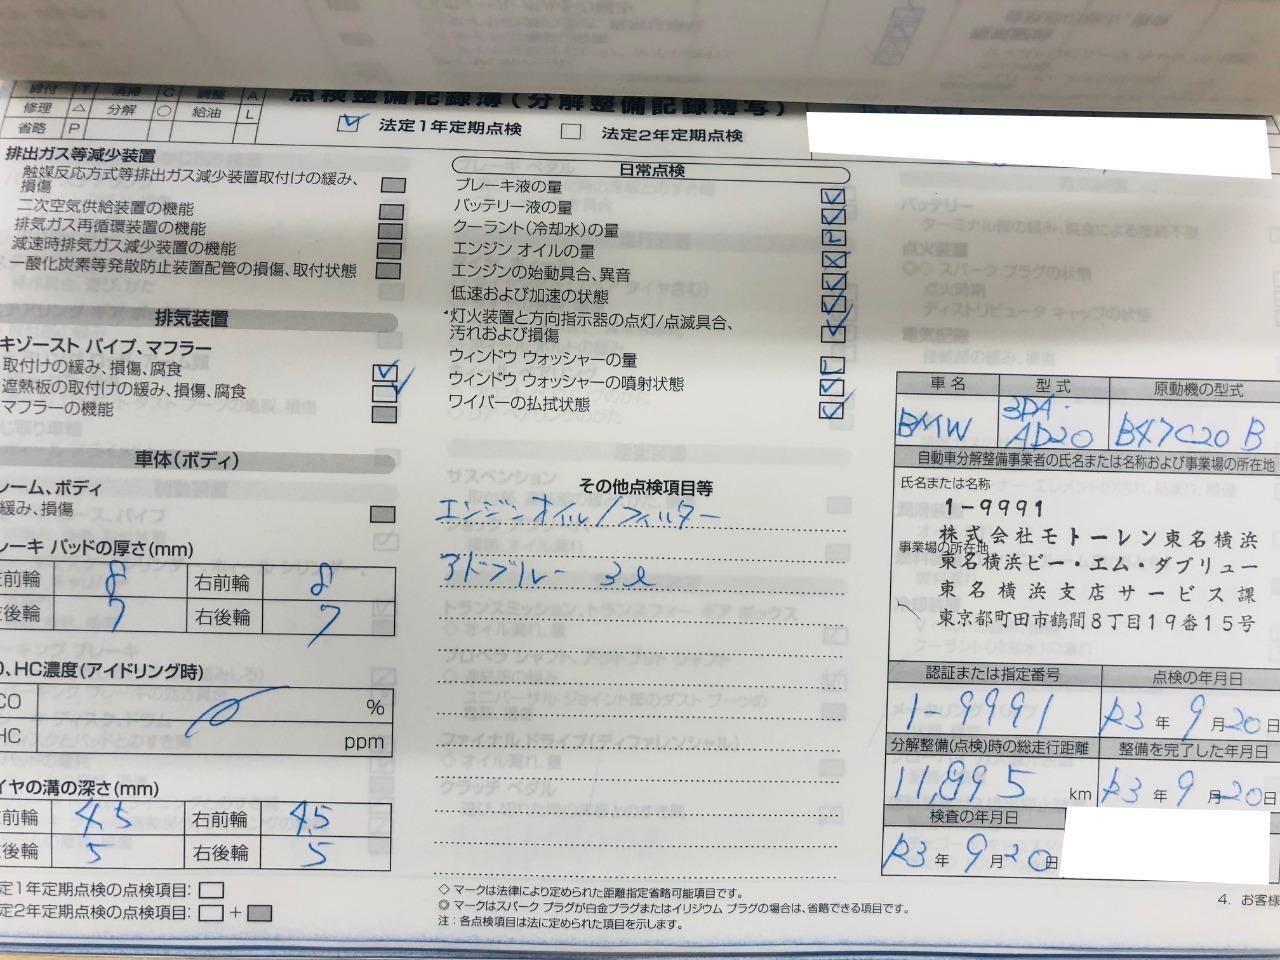 点検整備記録簿(分解整備記録簿写)
修理 △ 分解 ○ 給油 L
省略 P
法定1年定期点検 法定2年定期点検
排出ガス等減少装置
触媒反応方式等排出ガス減少装置取付けの緩み、
損傷
二次空気供給装置の機能
排気ガス再循環装置の機能
減速時排気ガス減少装置の機能
一酸化炭素等発散防止装置配管の損傷、取付状態
排気装置
キゾースト パイプ、マフラー
取付けの緩み、損傷、腐食
遮熱板の取付けの緩み、損傷、腐食
マフラーの機能
車体(ボディ)
レーム、ボディ
緩み、損傷
レーキ パッドの厚さ(mm)
前輪 8 右前輪 8
後輪 7 右後輪 7
、HC濃度(アイドリング時)
CO %
HC ppm
イヤの溝の深さ(mm)
前輪 4.5 右前輪 4.5
後輪 5 右後輪 5
定1年定期点検の点検項目:
定2年定期点検の点検項目: +
日常点検
ブレーキ液の量
バッテリー液の量
クーラント(冷却水)の量
エンジン オイルの量
エンジンの始動具合、異音
低速および加速の状態
灯火装置と方向指示器の点灯/点滅具合、
汚れおよび損傷
ウィンドウ ウォッシャーの量 L
ウィンドウ ウォッシャーの噴射状態
ワイパーの払拭状態
その他点検項目等
エンジンオイル/フィルター
アドブルー 3ℓ
◇ マークは法律により定められた距離指定省略可能項目です。
◎ マークはスパーク プラグが白金プラグまたはイリジウム プラグの場合は、省略できる項目です。
注:各点検項目は法に定められた項目を示します。
車名 型式 原動機の型式
BMW 3DA-AD20 B47C20B
自動車分解整備事業者の氏名または名称および事業場の所在地
氏名または名称
1-9991
株式会社モトーレン東名横浜
事業場の所在地
東名横浜ビー・エム・ダブリュー
東名横浜支店サービス課
東京都町田市鶴間8丁目19番15号
認証または指定番号 点検の年月日
1-9991 R3年9月20日
分解整備(点検)時の総走行距離 整備を完了した年月日
11,895 km R3年9月20日
検査の年月日
R3年9月20日
4. お客様